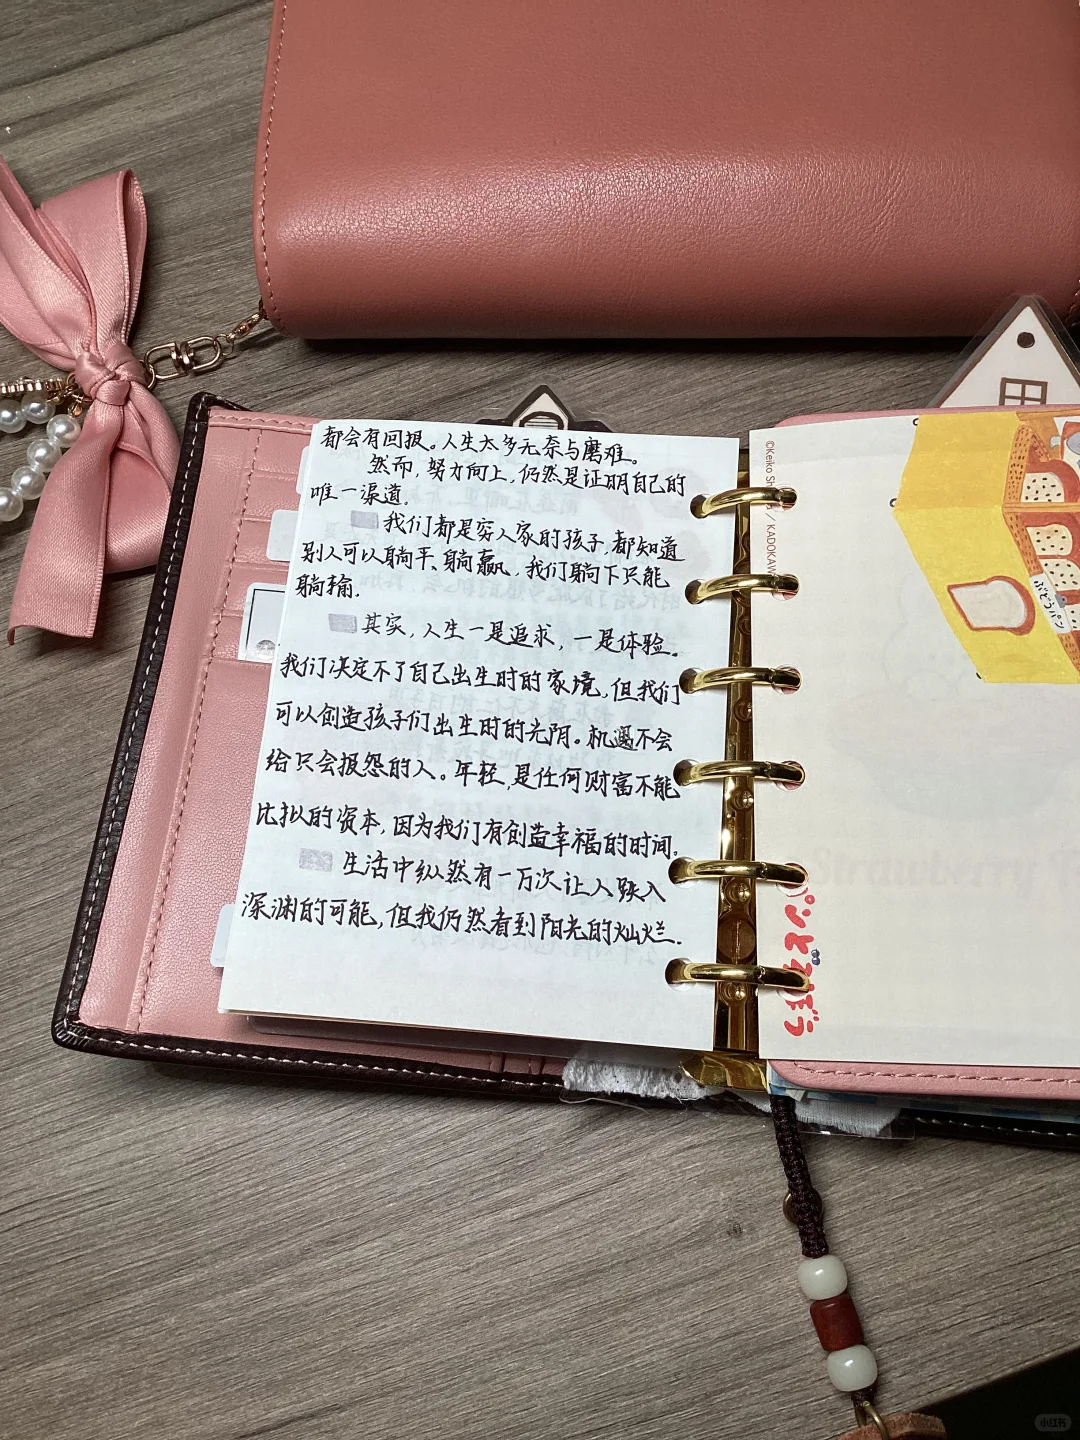 都会有回报。人生太多无奈与磨难。
然而,努力向上,仍然是证明自己的
唯一渠道.
我们都是穷人家的孩子,都知道
别人可以躺平、躺赢,我们躺下只能
躺输.
其实,人生一是追求,一是体验。
我们决定不了自己出生时的家境.但我们
可以创造孩子们出生时的光阴。机遇不会
给只会报怨的人。年轻,是任何财富不能
比拟的资本,因为我们有创造幸福的时间.
生活中纵然有一万次让人跌入
深渊的可能,但我仍然看到阳光的灿烂.
©Keiko Sh / KADOKAW
ぶどうパン
小红书